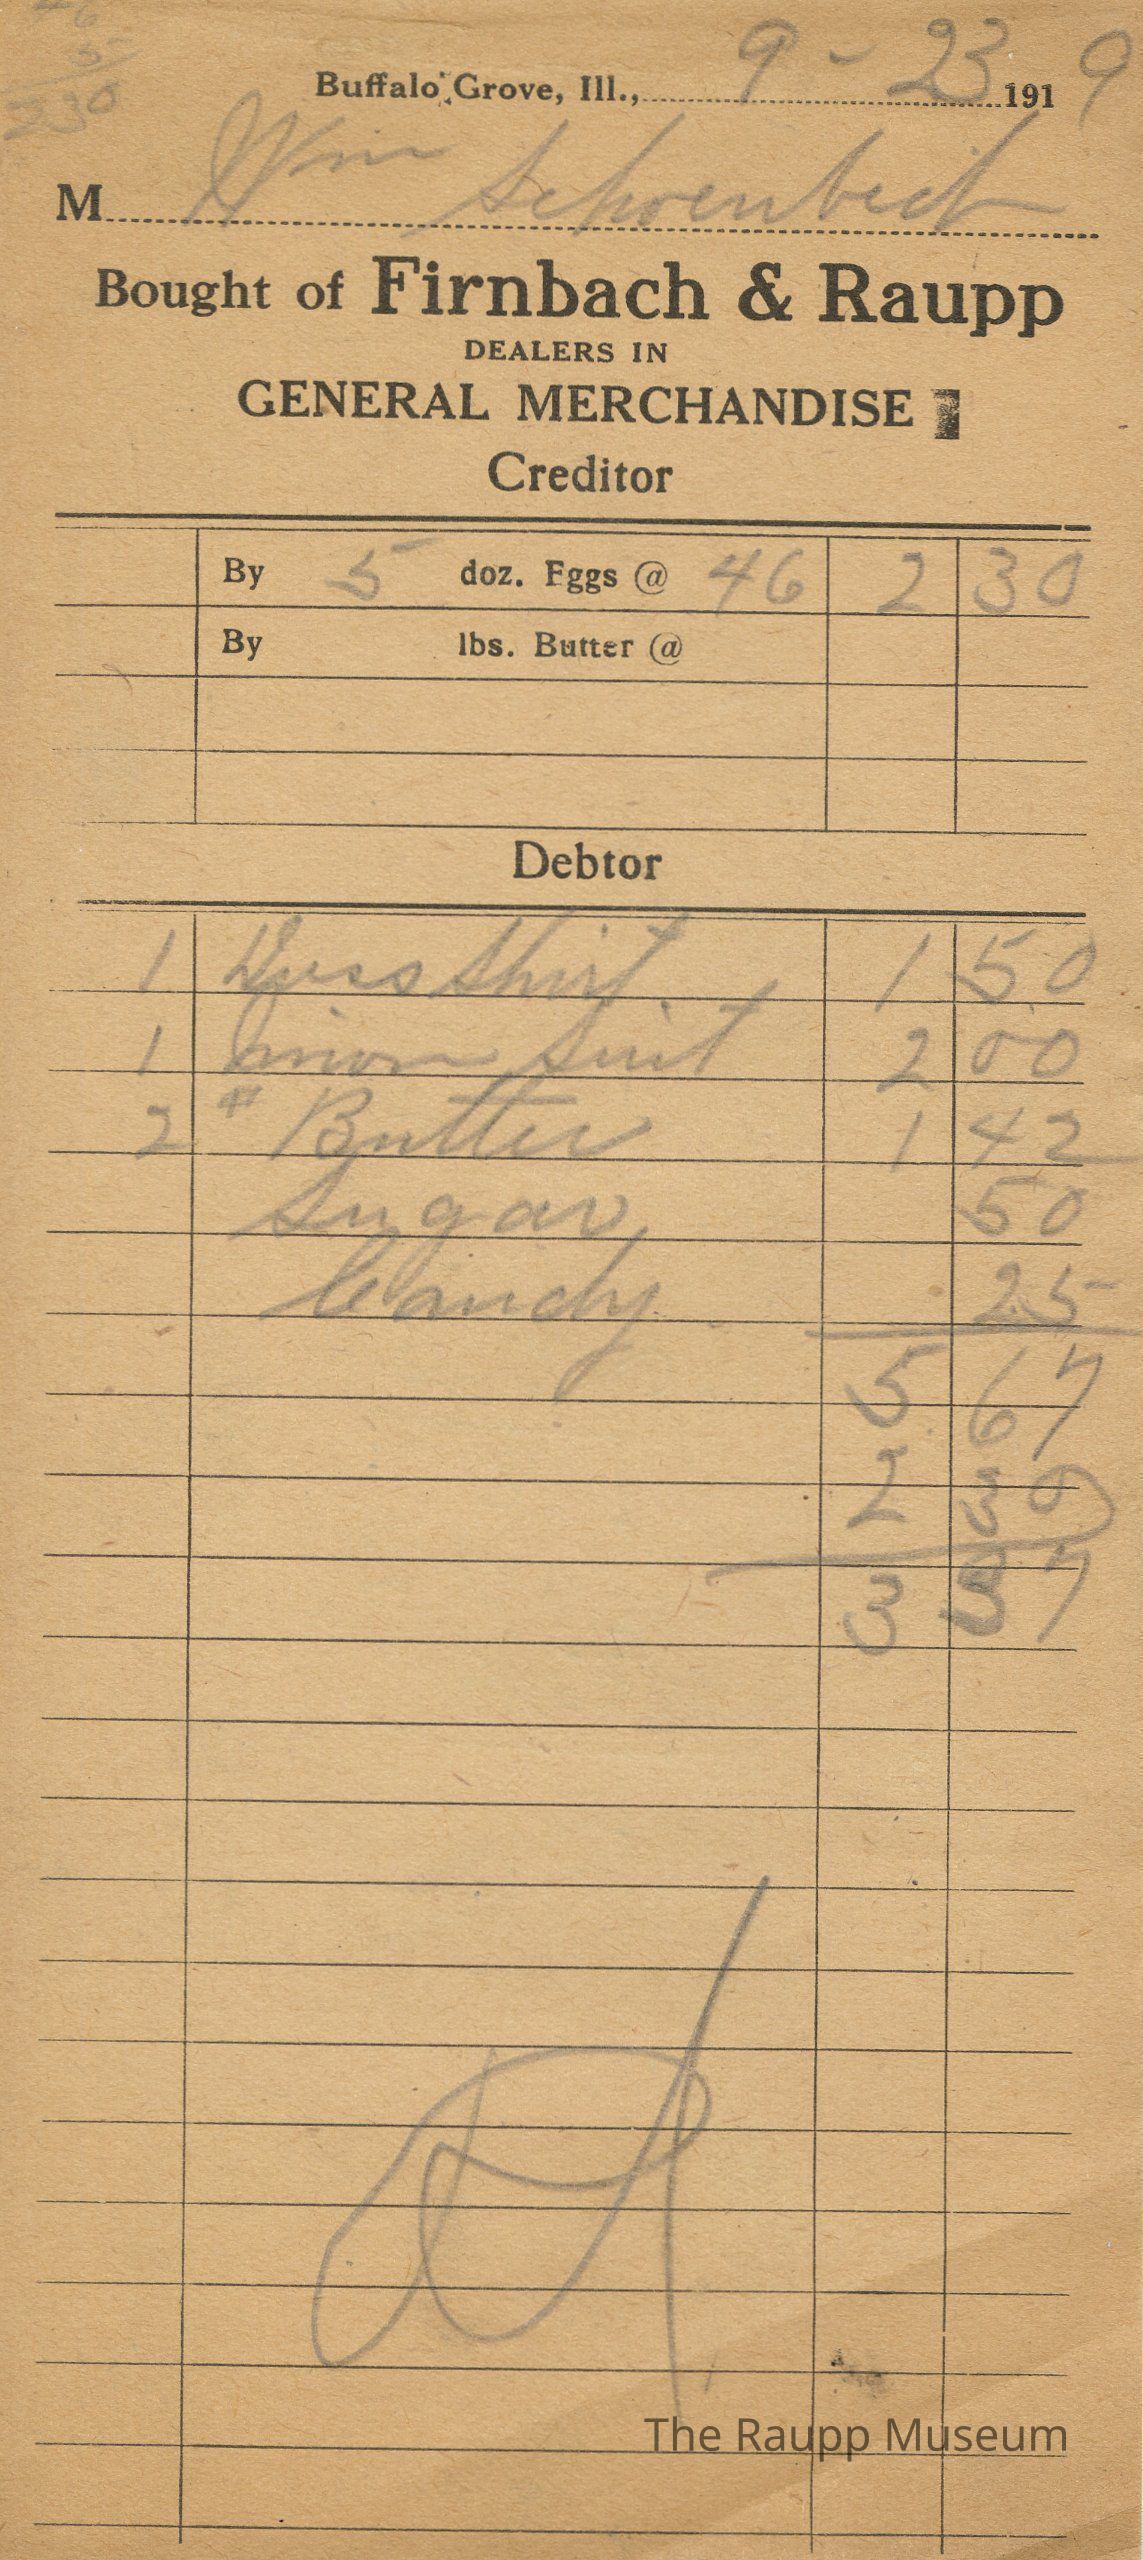 46
5
230
Buffalo Grove, Ill., 9-23 1919
M Wm Schoenbeck
Bought of Firnbach & Raupp
DEALERS IN
GENERAL MERCHANDISE
Creditor
By 5 doz. Eggs @ 46 2 30
By lbs. Butter @
Debtor
1 Dress Shirt 1 50
1 Union Suit 2 00
2 # Butter 1 42
Sugar 50
Candy 25
5 67
2 30
3 37
The Raupp Museum